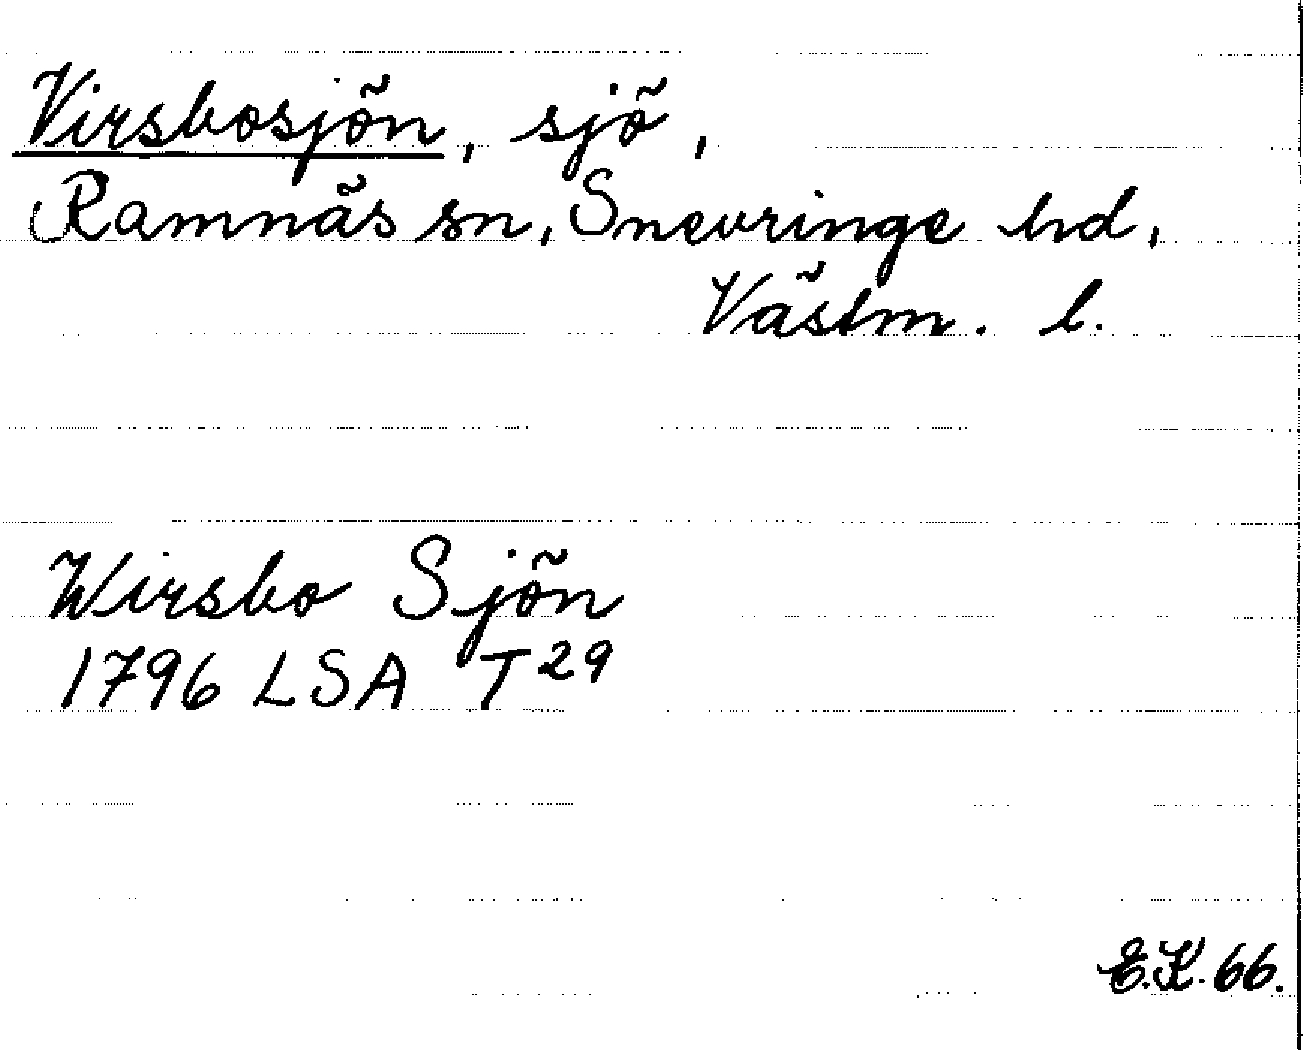 Virsbosjön, sjö,
Ramnäs sn, Snevringe hd,
Västm. l.
Wirsbo Sjön
1796 LSA T29
E.K. 66.